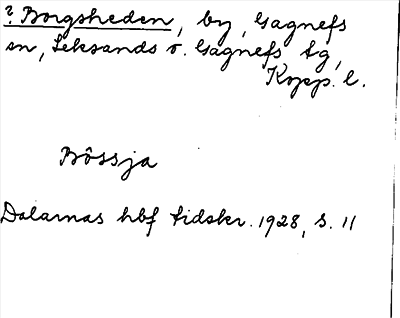 ? Borgsheden, by, Gagnefs
sn, Leksands o. Gagnefs tg,
Kopp. l.
Bôssja
Dalarnas hbf tidskr. 1928, s. 11